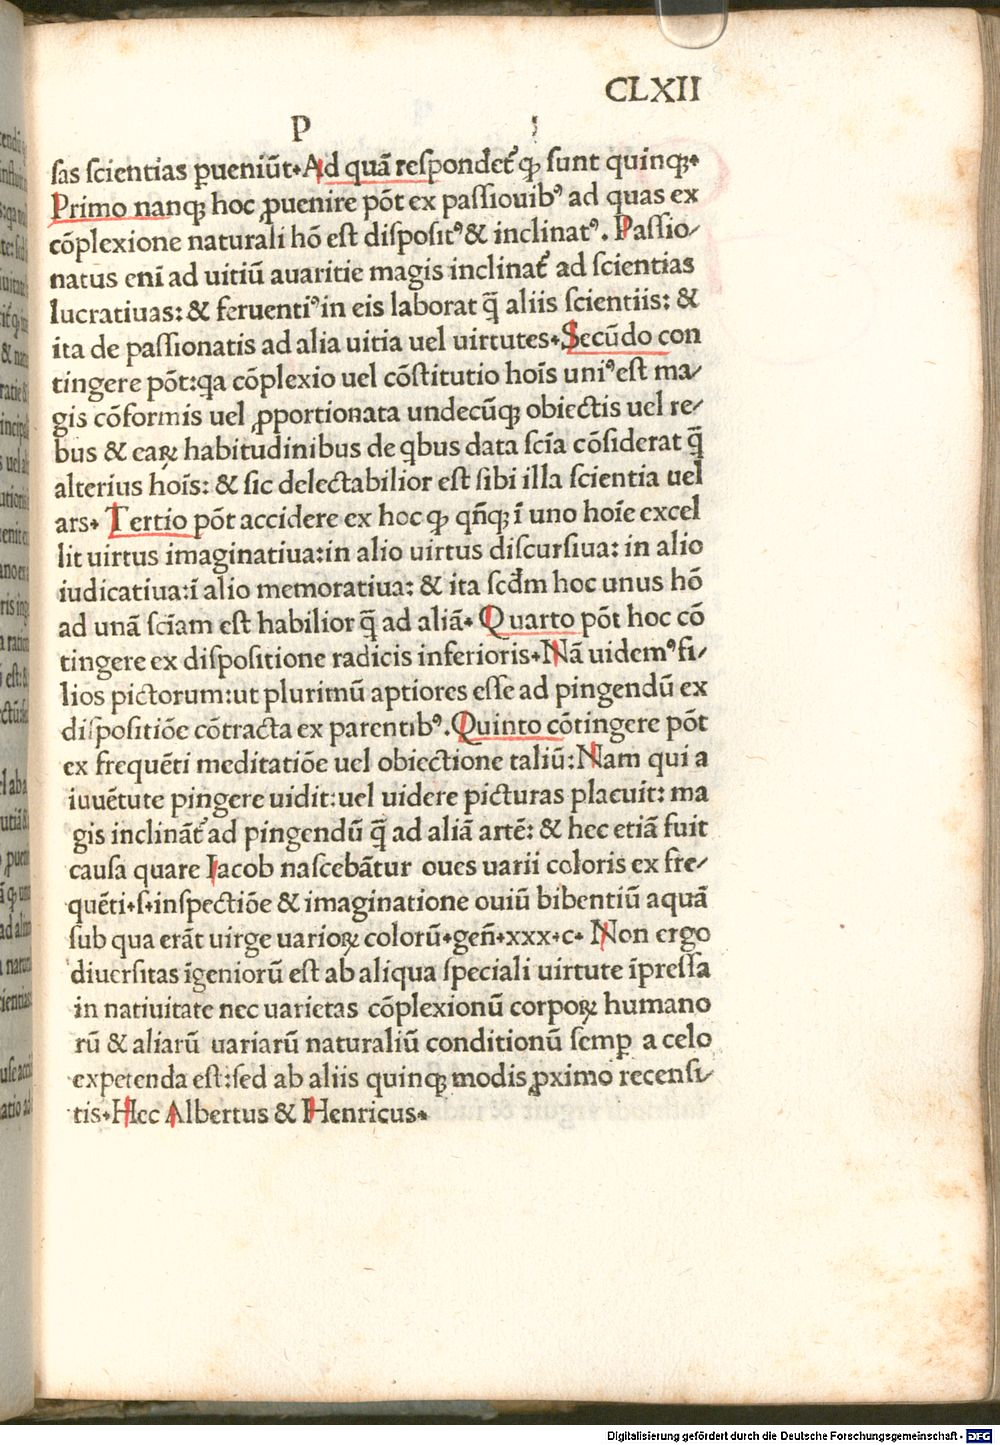 CLXII
P
sas scientias ꝑueniūt. Ad quā respondet᷑ ꝙ sunt quinqꝫ.
Primo nanqꝫ hoc ꝓuenire pōt ex passiouibꝰ ad quas ex
cōplexione naturali hō est dispositꝰ & inclinatꝰ. Passio⸗
natus eni ad uitiū auaritie magis inclinat᷑ ad scientias
lucratiuas: & feruentiꝰ in eis laborat q̄ aliis scientiis: &
ita de passionatis ad alia uitia uel uirtutes. Secūdo con
tingere pōt: qa cōplexio uel cōstitutio hoīs uniꝰ est ma⸗
gis cōformis uel ꝓportionata undecūqꝫ obiectis uel re⸗
bus & eaꝝ habitudinibus de qbus data scīa cōsiderat q̄
alterius hoīs: & sic delectabilior est sibi illa scientia uel
ars. Tertio pōt accidere ex hoc ꝙ qn̄qꝫ ī uno hoīe excel
lit uirtus imaginatiua: in alio uirtus discursiua: in alio
iudicatiua: ī alio memoratiua: & ita scd̄m hoc unus hō
ad unā sciam est habilior q̄ ad aliā. Quarto pōt hoc cō
tingere ex dispositione radicis inferioris. Nā uidemꝰ fi⸗
lios pictorum: ut plurimū aptiores esse ad pingendū ex
dispositiōe cōtracta ex parentibꝰ. Quinto cōtingere pōt
ex frequēti meditatiōe uel obiectione taliū: Nam qui a
iuuētute pingere uidit: uel uidere picturas placuit: ma
gis inclināt᷑ ad pingendū q̄ ad aliā artē: & hec etiā fuit
causa quare Iacob nascebātur oues uarii coloris ex fre⸗
quēti. s. inspectiōe & imaginatione ouiū bibentiū aquā
sub qua erāt uirge uarioꝝ colorū. gen̄. xxx. c. Non ergo
diuersitas īgeniorū est ab aliqua speciali uirtute īpressa
in natiuitate nec uarietas cōplexionū corpoꝝ humano
rū & aliarū uariarū naturaliū conditionū semꝑ a celo
expetenda est: sed ab aliis quinqꝫ modis ꝓximo recensi⸗
tis. Hec Albertus & Henricus.
Digitalisierung gefördert durch die Deutsche Forschungsgemeinschaft - DFG